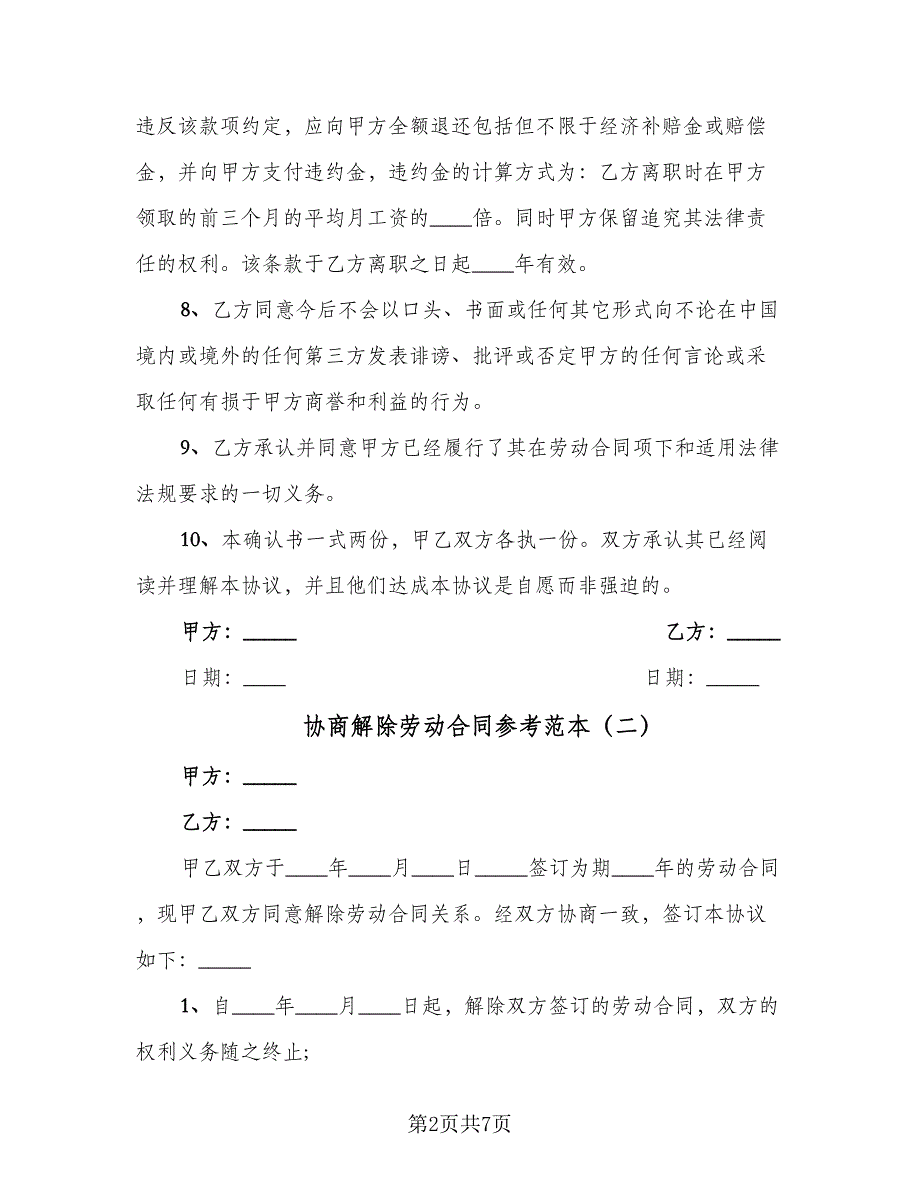 违反该款项约定，应向甲方全额退还包括但不限于经济补赔金或赔偿
金，并向甲方支付违约金，违约金的计算方式为：乙方离职时在甲方
领取的前三个月的平均月工资的____倍。同时甲方保留追究其法律责
任的权利。该条款于乙方离职之日起____年有效。
8、乙方同意今后不会以口头、书面或任何其它形式向不论在中国
境内或境外的任何第三方发表诽谤、批评或否定甲方的任何言论或采
取任何有损于甲方商誉和利益的行为。
9、乙方承认并同意甲方已经履行了其在劳动合同项下和适用法律
法规要求的一切义务。
10、本确认书一式两份，甲乙双方各执一份。双方承认其已经阅
读并理解本协议，并且他们达成本协议是自愿而非强迫的。
甲方：_____ 乙方：_____
日期：____ 日期：_____
协商解除劳动合同参考范本（二）
甲方：_____
乙方：_____
甲乙双方于____年____月____日_____签订为期____年的劳动合同
，现甲乙双方同意解除劳动合同关系。经双方协商一致，签订本协议
如下：_____
1、自____年____月____日起，解除双方签订的劳动合同，双方的
权利义务随之终止;
第2页共7页